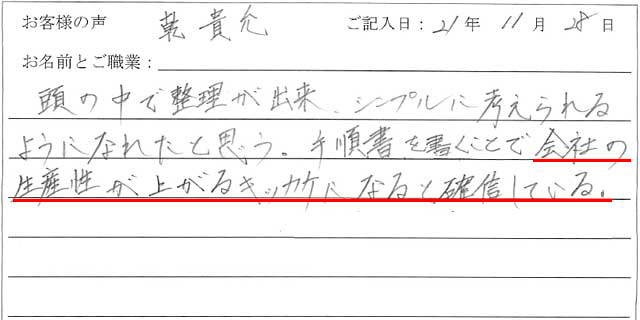 お客様の声 乾 貴允 ご記入日：21年 11月 28日
お名前とご職業：
頭の中で整理が出来、シンプルに考えられる
ようになれたと思う。手順書を書くことで会社の
生産性が上がるキッカケになると確信している。